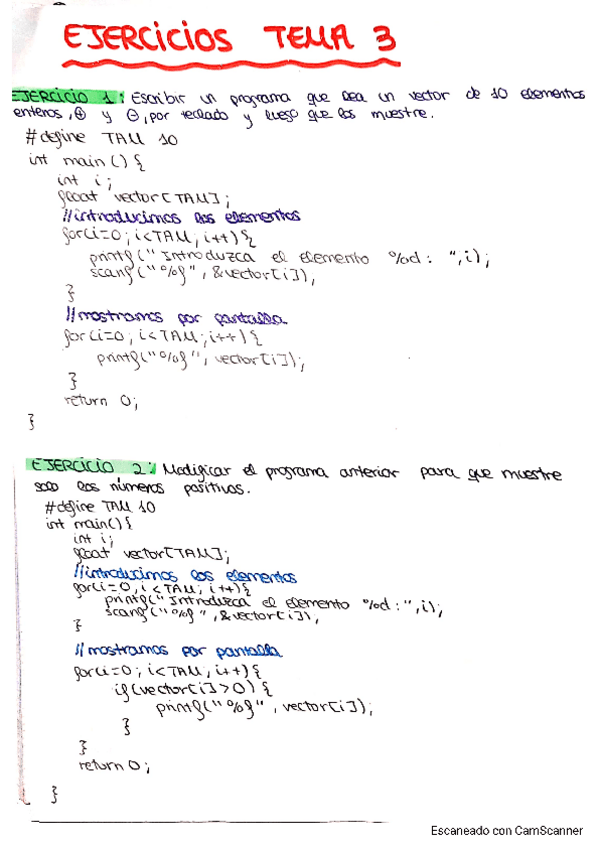 EJERCICIOS TEMA 3
EJERCICIO 1: Escribir un programa que lea un vector de 10 elementos
enteros, ⊕ y ⊖, por teclado y luego que los muestre.
#define TAM 10
int main () {
int i;
float vector[TAM];
//introducimos los elementos
for(i=0; i<TAM; i++){
printf("Introduzca el elemento %d: ",i);
scanf("%f", &vector[i]);
}
//mostramos por pantalla
for(i=0; i<TAM; i++){
printf("%f", vector[i]);
}
return 0;
}
EJERCICIO 2: Modificar el programa anterior para que muestre
solo los números positivos.
#define TAM 10
int main(){
int i;
float vector[TAM];
//introducimos los elementos
for(i=0, i<TAM; i++){
printf("Introduzca el elemento %d:",i);
scanf("%f", &vector[i]);
}
//mostramos por pantalla
for(i=0; i<TAM; i++){
if(vector[i]>0) {
printf("%f", vector[i]);
}
}
return 0;
}
Escaneado con CamScanner